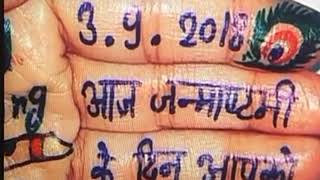 3.9.2018
ng आज जन्माष्टमी
के दिन आपको